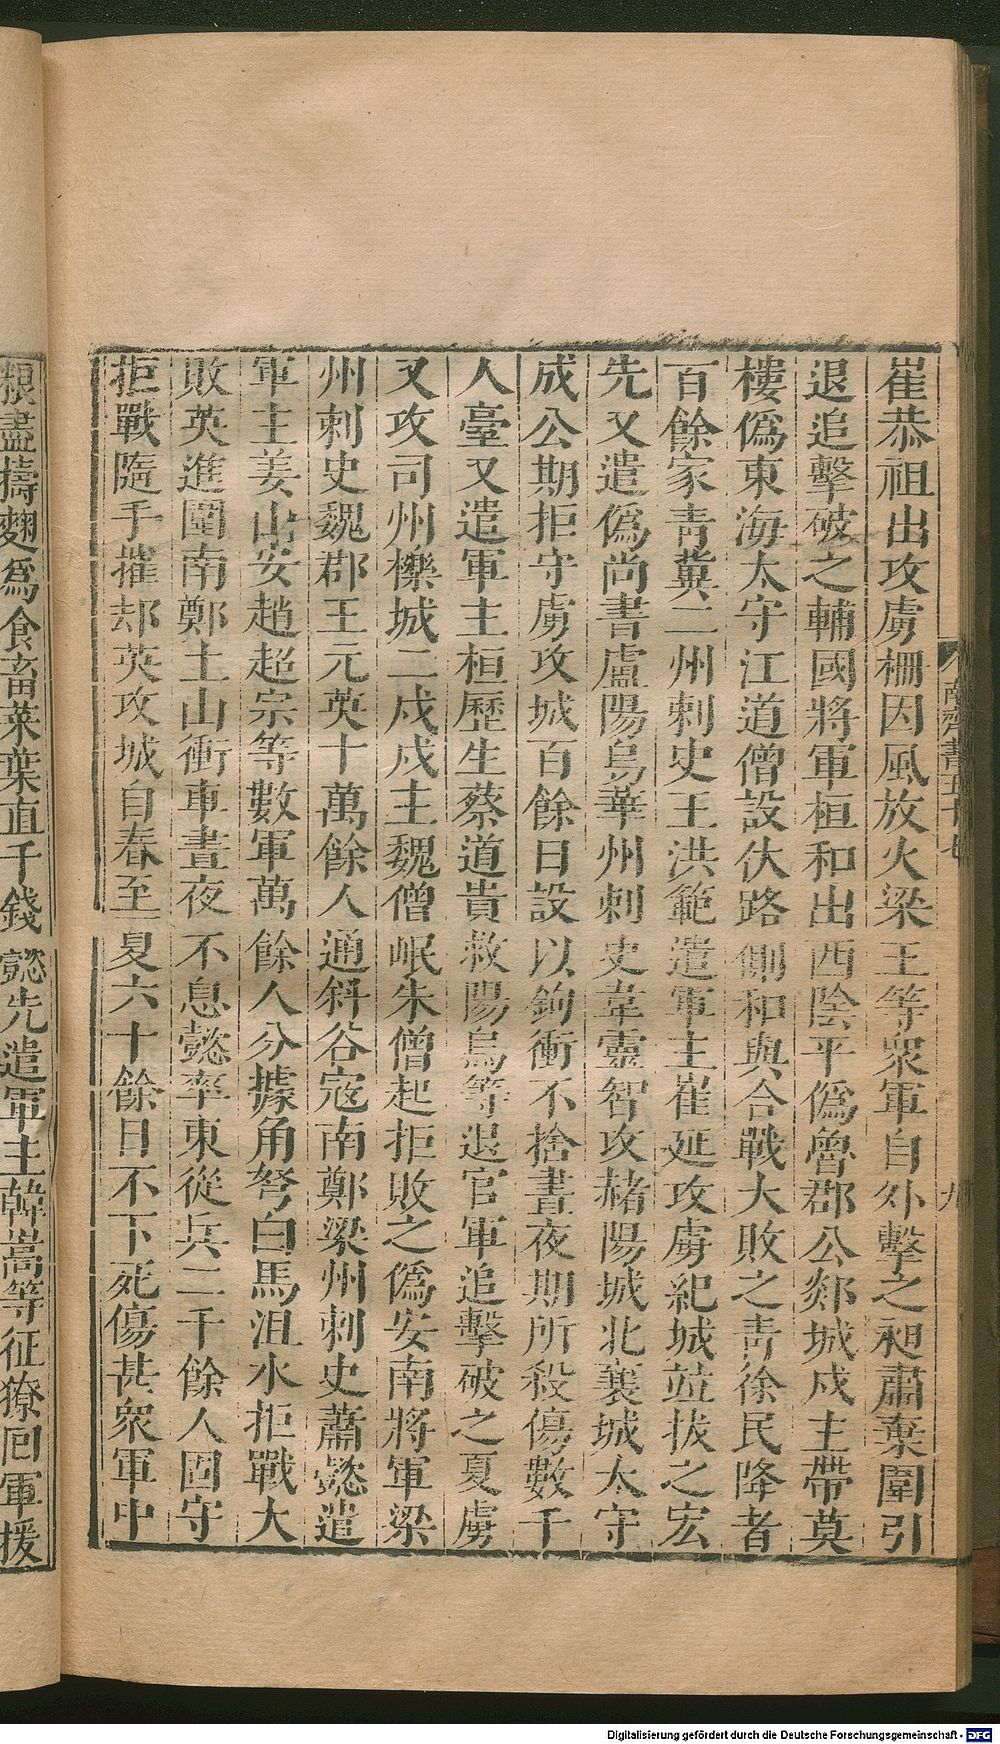 崔恭祖出攻虜柵因風放火梁王等衆軍自外擊之昶肅棄圍引
退追擊破之輔國將軍桓和出西陰平僞魯郡公郯城戍主帶莫
樓僞東海太守江道僧設伏路側和與合戰大敗之靑徐民降者
百餘家靑冀二州刺史王洪範遣軍主崔延攻虜紀城竝拔之宏
先又遣僞尚書盧陽烏華州刺史韋靈智攻赭陽城北襄城太守
成公期拒守虜攻城百餘日設以鉤衝不捨晝夜期所殺傷數千
人臺又遣軍主桓歷生蔡道貴救陽烏等退官軍追擊破之夏虜
又攻司州櫟城二戍戍主魏僧岷朱僧起拒敗之僞安南將軍梁
州刺史魏郡王元英十萬餘人通斜谷寇南鄭梁州刺史蕭懿遣
軍主姜山安趙超宗等數軍萬餘人分據角弩白馬沮水拒戰大
敗英進圍南鄭土山衝車晝夜不息懿率東從兵二千餘人固守
拒戰隨手摧却英攻城自春至夏六十餘日不下死傷甚衆軍中
糧盡擣麴爲食畜菜葉直千錢懿先遣軍主韓嵩等征獠囘軍援
南齊書五十七
九
Digitalisierung gefördert durch die Deutsche Forschungsgemeinschaft - DFG